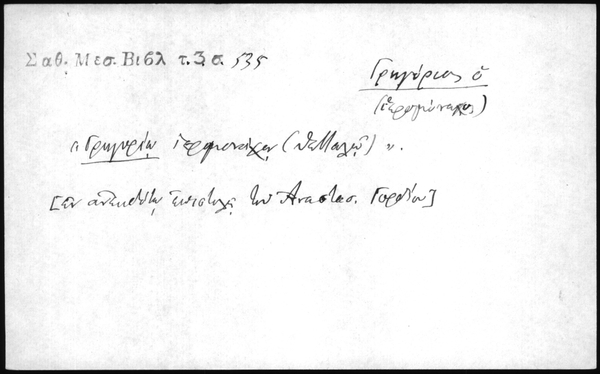 Σαθ. Μεσ. Βιβλ τ. 3, σ. 535
Γρηγόριος ὁ
(ἱερομόναχος)
"Γρηγορίῳ ἱερομονάχῳ (Θετταλῷ)".
[ἐν ἀνεκδότῳ ἐπιστολῇ τοῦ Ἀναστασ. Γορδίου]